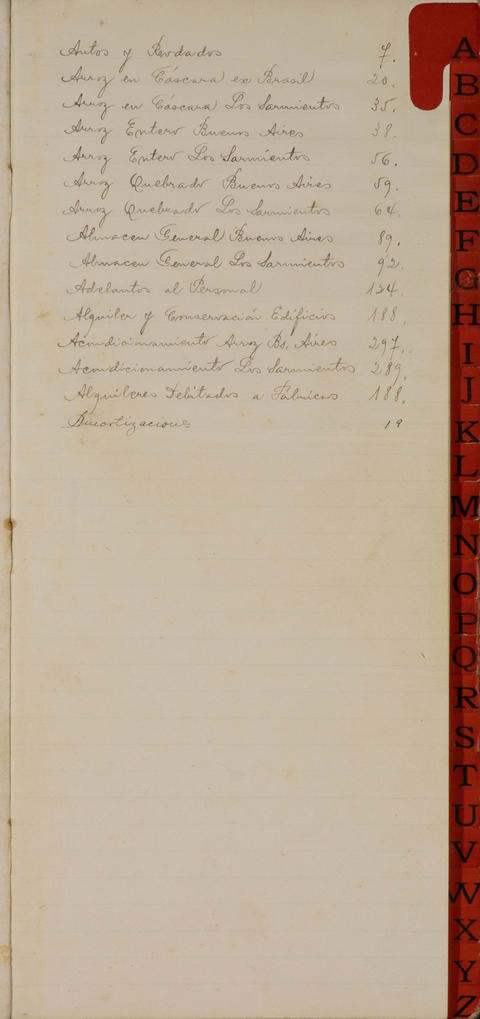 Autos y Rodados 7.
Arroz en Cáscara ex Brasil 20.
Arroz en Cáscara Los Sarmientos 35.
Arroz Entero Buenos Aires 38.
Arroz Entero Los Sarmientos 56.
Arroz Quebrado Buenos Aires 59.
Arroz Quebrado Los Sarmientos 64.
Almacen General Buenos Aires 89.
Almacen General Los Sarmientos 92.
Adelantos al Personal 124.
Alquiler y Conservación Edificios 188.
Acondicionamiento Arroz Bs. Aires 297.
Acondicionamiento Los Sarmientos 289.
Alquileres Debitados a Fábricas 188.
Amortizaciones 19
A
B
C
D
E
F
G
H
I
J
K
L
M
N
O
P
Q
R
S
T
U
V
W
X
Y
Z